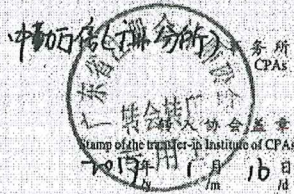 中勤万信(广州分所)事务所
CPAs
广东省注册会计师协会
转会转所
专用章
转入协会盖章
Stamp of the transfer-in Institute of CPAs
2015年 1月 16日
/y /m /d